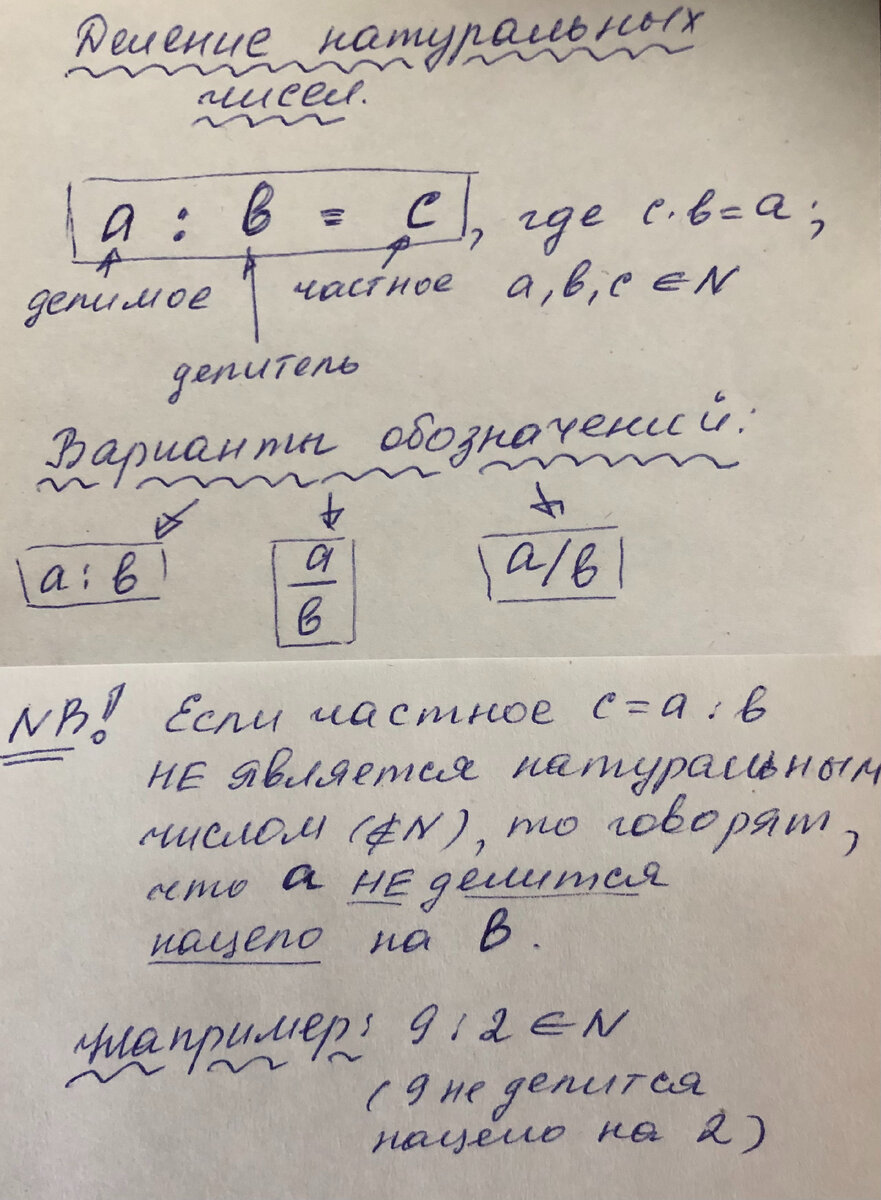 Деление натуральных
чисел.
a : в = c, где c·в=a;
делимое частное a, в, c ∈ N
делитель
Варианты обозначений:
a : в a/в a/в
NB! Если частное c = a : в
НЕ является натуральным
числом (∉N), то говорят,
что a НЕ делится
нацело на в.
Например: 9 : 2 ∈ N
(9 не делится
нацело на 2)